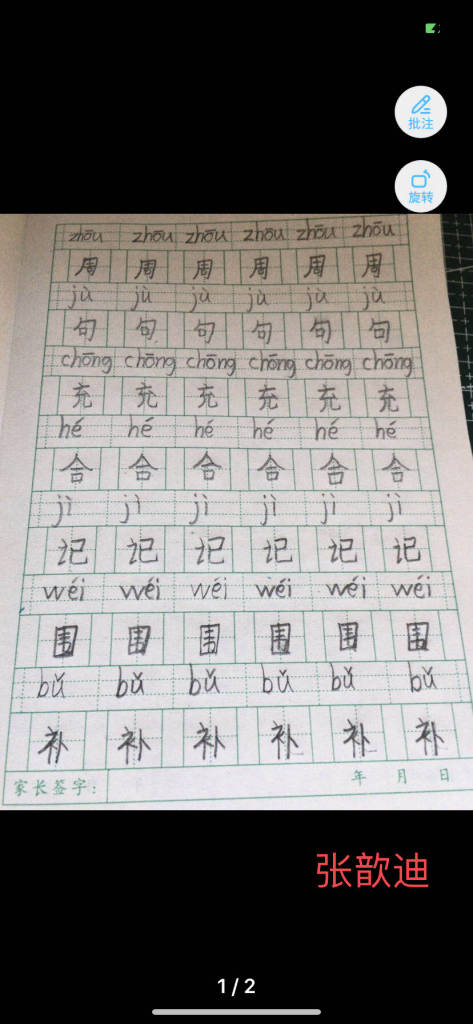 批注
旋转
zhōu zhōu zhōu zhōu zhōu zhōu
周 周 周 周 周 周
jù jù jù jù jù jù
句 句 句 句 句 句
chōng chōng chōng chōng chōng chōng
充 充 充 充 充 充
hé hé hé hé hé hé
合 合 合 合 合 合
jì jì jì jì jì jì
记 记 记 记 记 记
wéi wéi wéi wéi wéi wéi
围 围 围 围 围 围
bǔ bǔ bǔ bǔ bǔ bǔ
补 补 补 补 补 补
家长签字： 年 月 日
张歆迪
1 / 2